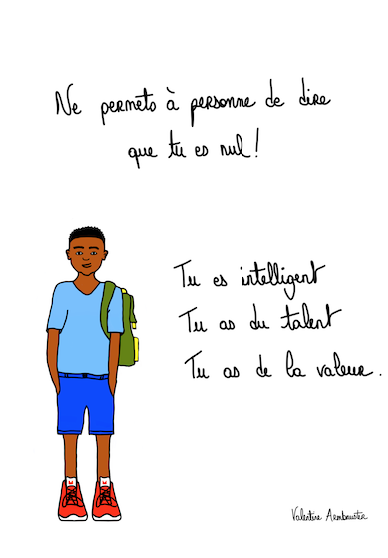 Ne permets à personne de dire
que tu es nul !
Tu es intelligent
Tu as du talent
Tu as de la valeur.
Valentine